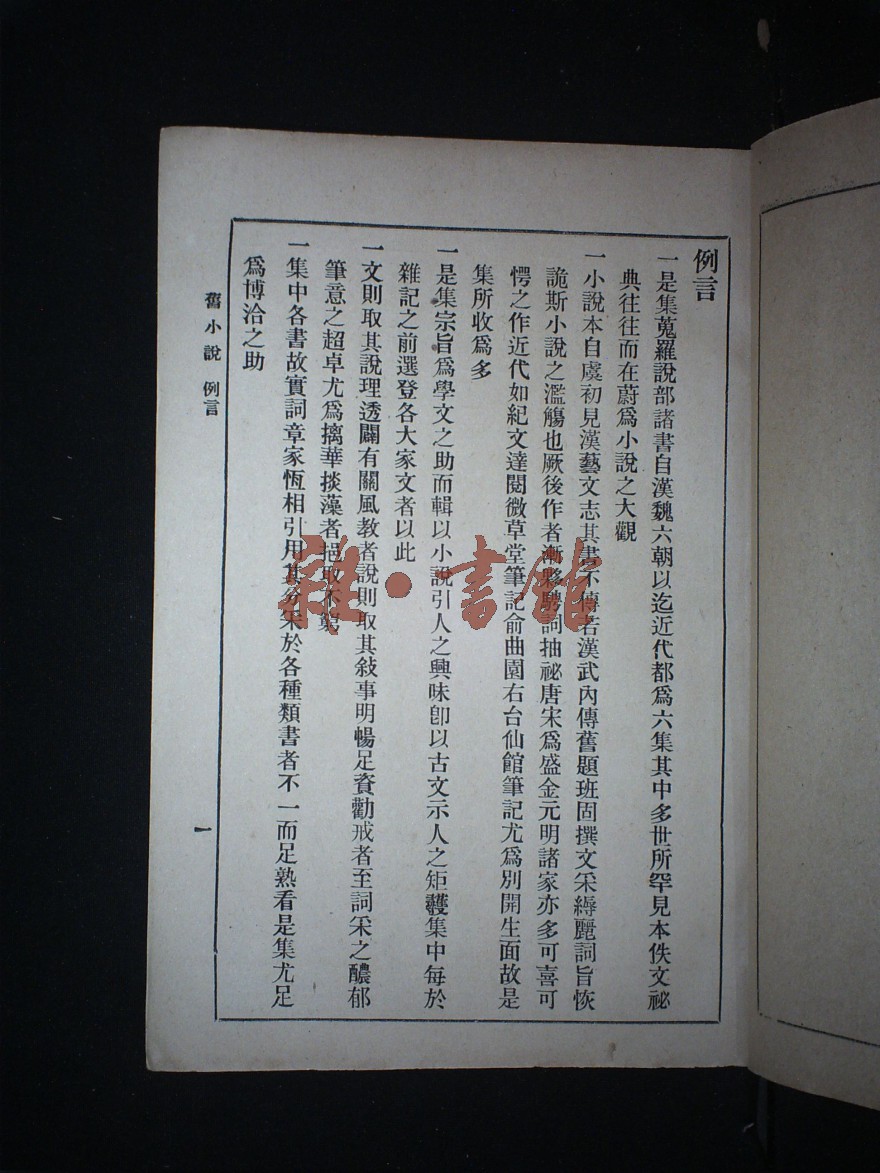 例言
一是集蒐羅說部諸書自漢魏六朝以迄近代都爲六集其中多世所罕見本佚文祕
典往往而在蔚爲小說之大觀
一小說本自虞初見漢藝文志其書不傳若漢武內傳舊題班固撰文采縟麗詞旨恢
詭斯小說之濫觴也厥後作者漸夥騁詞抽祕唐宋爲盛金元明諸家亦多可喜可
愕之作近代如紀文達閱微草堂筆記俞曲園右台仙館筆記尤爲別開生面故是
集所收爲多
一是集宗旨爲學文之助而輯以小說引人之興味卽以古文示人之矩矱集中每於
雜記之前選登各大家文者以此
一文則取其說理透闢有關風教者說則取其敍事明暢足資勸戒者至詞采之醲郁
筆意之超卓尤爲摛華掞藻者挹取不窮
一集中各書故實詞章家恆相引用其分采於各種類書者不一而足熟看是集尤足
爲博洽之助
舊小說 例言
一
雜·書館